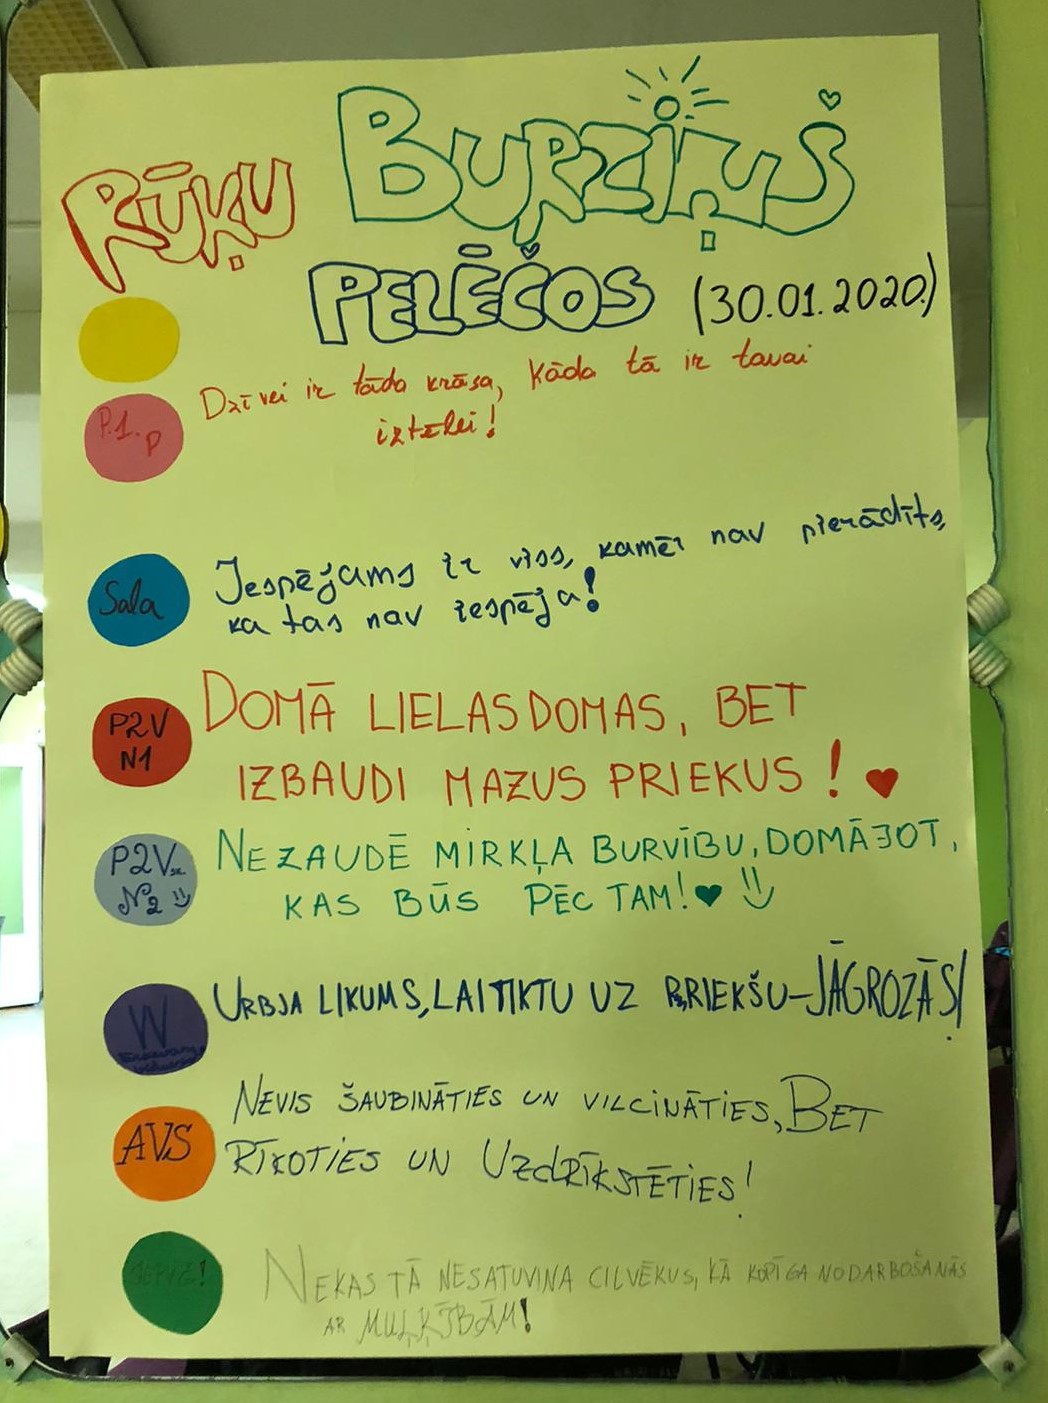 RŪĶU BURZIŅŠ
PELĒČOS (30.01.2020.)
Dzīvei ir tāda krāsa, kāda tā ir tavai
iztēlei!
P.1.
P
Sala
Iespējams ir viss, kamēr nav pierādīts,
ka tas nav iespēja!
P2V
N1
DOMĀ LIELAS DOMAS, BET
IZBAUDI MAZUS PRIEKUS!
P2V
N2
NEZAUDĒ MIRKĻA BURVĪBU, DOMĀJOT,
KAS BŪS PĒC TAM!
W
URBJA LIKUMS, LAI TIKTU UZ PRIEKŠU-JĀGROZĀS!
AVS
NEVIS ŠAUBINĀTIES UN VILCINĀTIES, BET
RĪKOTIES UN UZDRĪKSTĒTIES!
NEKAS TĀ NESATUVINA CILVĒKUS, KĀ KOPĪGA NODARBOŠANĀS
AR MUĻĶĪBĀM!